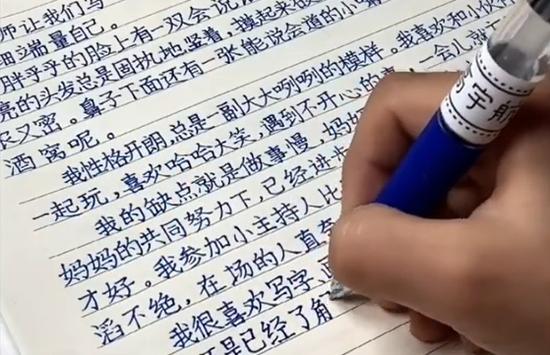 师让我们写
端量自己。
胖乎乎的脸上有一双会说
亮的头发总是固执地竖着,摸起来
又密。鼻子下面还有一张能说会道的小嘴
酒窝呢。
我性格开朗,总是一副大大咧咧的模样。我喜欢和小伙伴
一起玩,喜欢哈哈大笑,遇到不开心的事,一会儿就
我的缺点就是做事慢,妈妈
妈妈的共同努力下,已经进
才好。我参加小主持人比
滔不绝,在场的人直夸
我很喜欢写字,
是已经了角
宇航